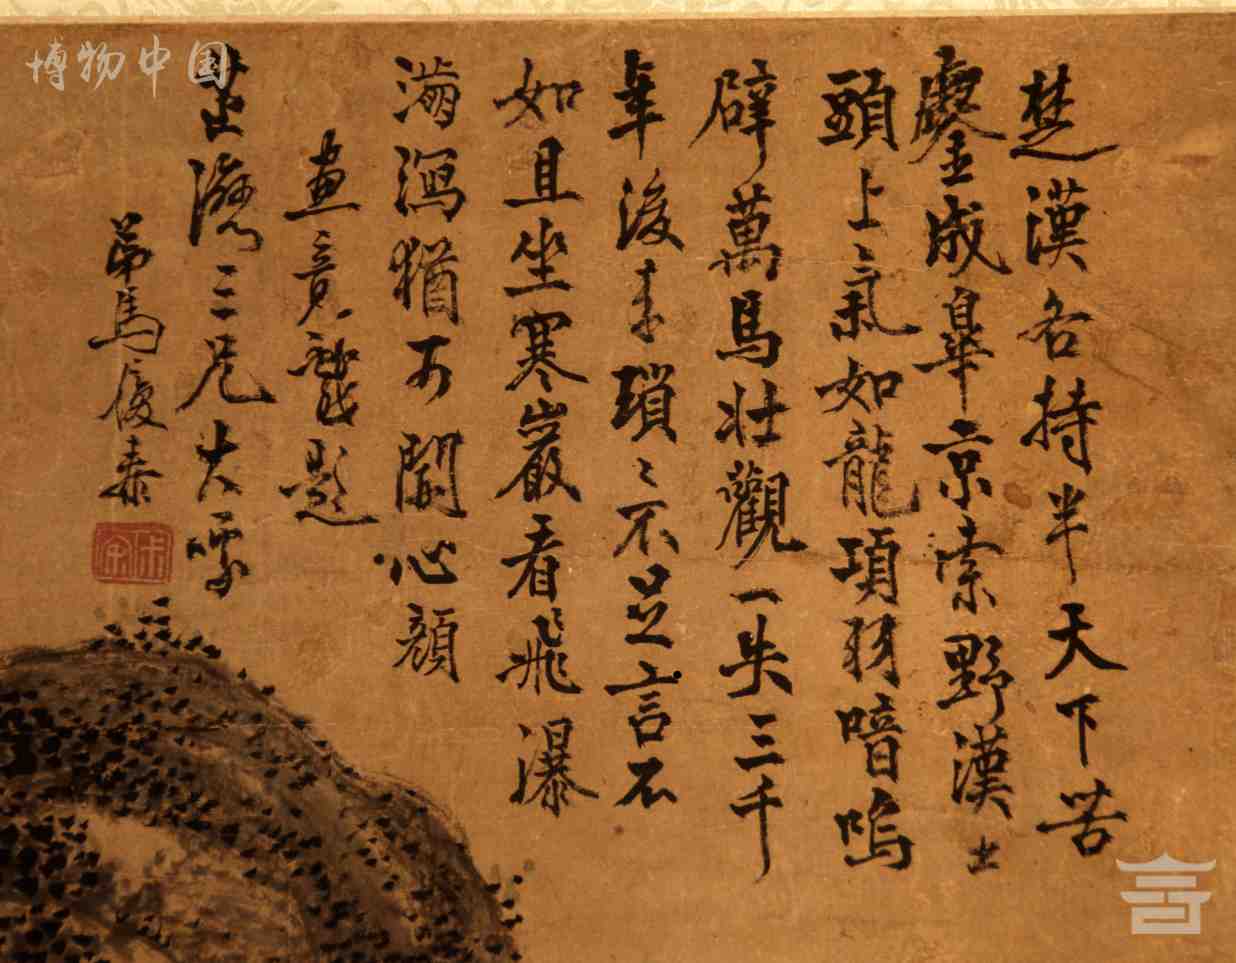 楚漢各持半天下苦
鏖成皋京索野漢
頭上氣如龍項羽喑嗚
辟萬馬壯觀一失三千
年後來瑣〻不足言不
如且坐寒巖看飛瀑
瀉猶可開心顏
畫竟戲題
三兄大噱
弟馬復泰
博物中国